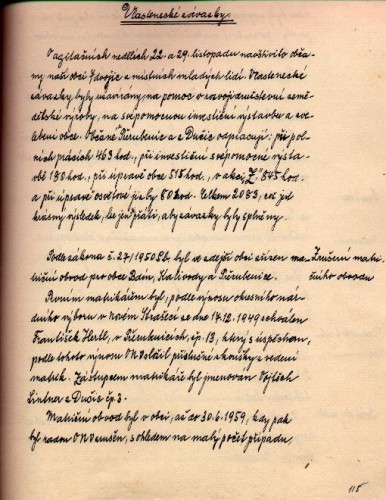 Vlastenecké závazky.
V agitačních nedělích 22. a 29. listopadu navštívilo obča-
ny naší obce 7 dvojic z místních mladých lidí. Vlastenecké
závazky byly uzavírány na pomoc v rozvoji družstevní země-
dělské výroby, na svépomocnou investiční výstavbu a zve-
lebení obce. Občané Přerubenic a z Dučic odpracují: při pol-
ních pracích 463 hod., při investiční svépomocné výsta-
vbě 180 hod., při úpravě obce 515 hod., v akci "Z" 845 hod.
a při úpravě osvětové jizby 80 hod. Celkem 2083, což je
krásný výsledek, lze jen přáti, aby závazky byly splněny.
Podle zákona č. 27/1950 Sb. byl ve zdejší obci zřízen ma-
triční obvod pro obce Bdín, Kalivody a Přerubenice.
Zrušení matri
čního obvodu
Prvním matrikářem byl, podle výnosu okresního ná-
rodního výboru v Novém Strašecí ze dne 17.12.1949 schválen
František Hertl, v Přerubenicích, čp. 13, který s úspěchem,
podle tohoto výnosu ONV složil příslušné zkoušky z vedení
matrik. Zástupcem matrikáře byl jmenován Vojtěch
Lintner z Dučic čp. 3.
Matriční obvod byl v obci, až do 30.6.1959, kdy pak
byl radou ONV zrušen, s ohledem na malý počet případů,
115